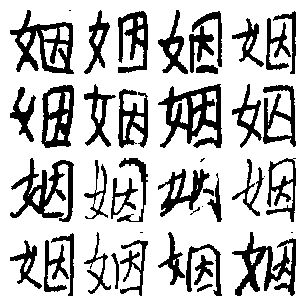 姻姻姻姻
姻姻姻姻
姻姻姻姻
姻姻姻姻